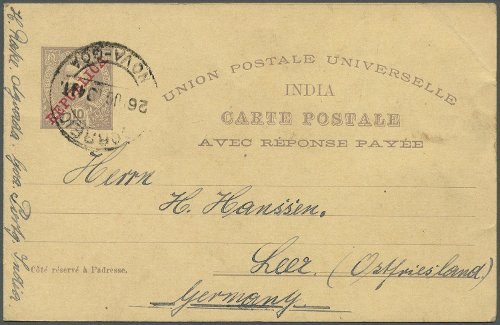 UNION POSTALE UNIVERSELLE
INDIA
CARTE POSTALE
AVEC RÉPONSE PAYÉE
REPUBLICA
NOVA-GOA
26
Herrn
H. Hanssen.
Leer. (Ostfriesland)
Germany.
Côté réservé à l'adresse.
Goa
India